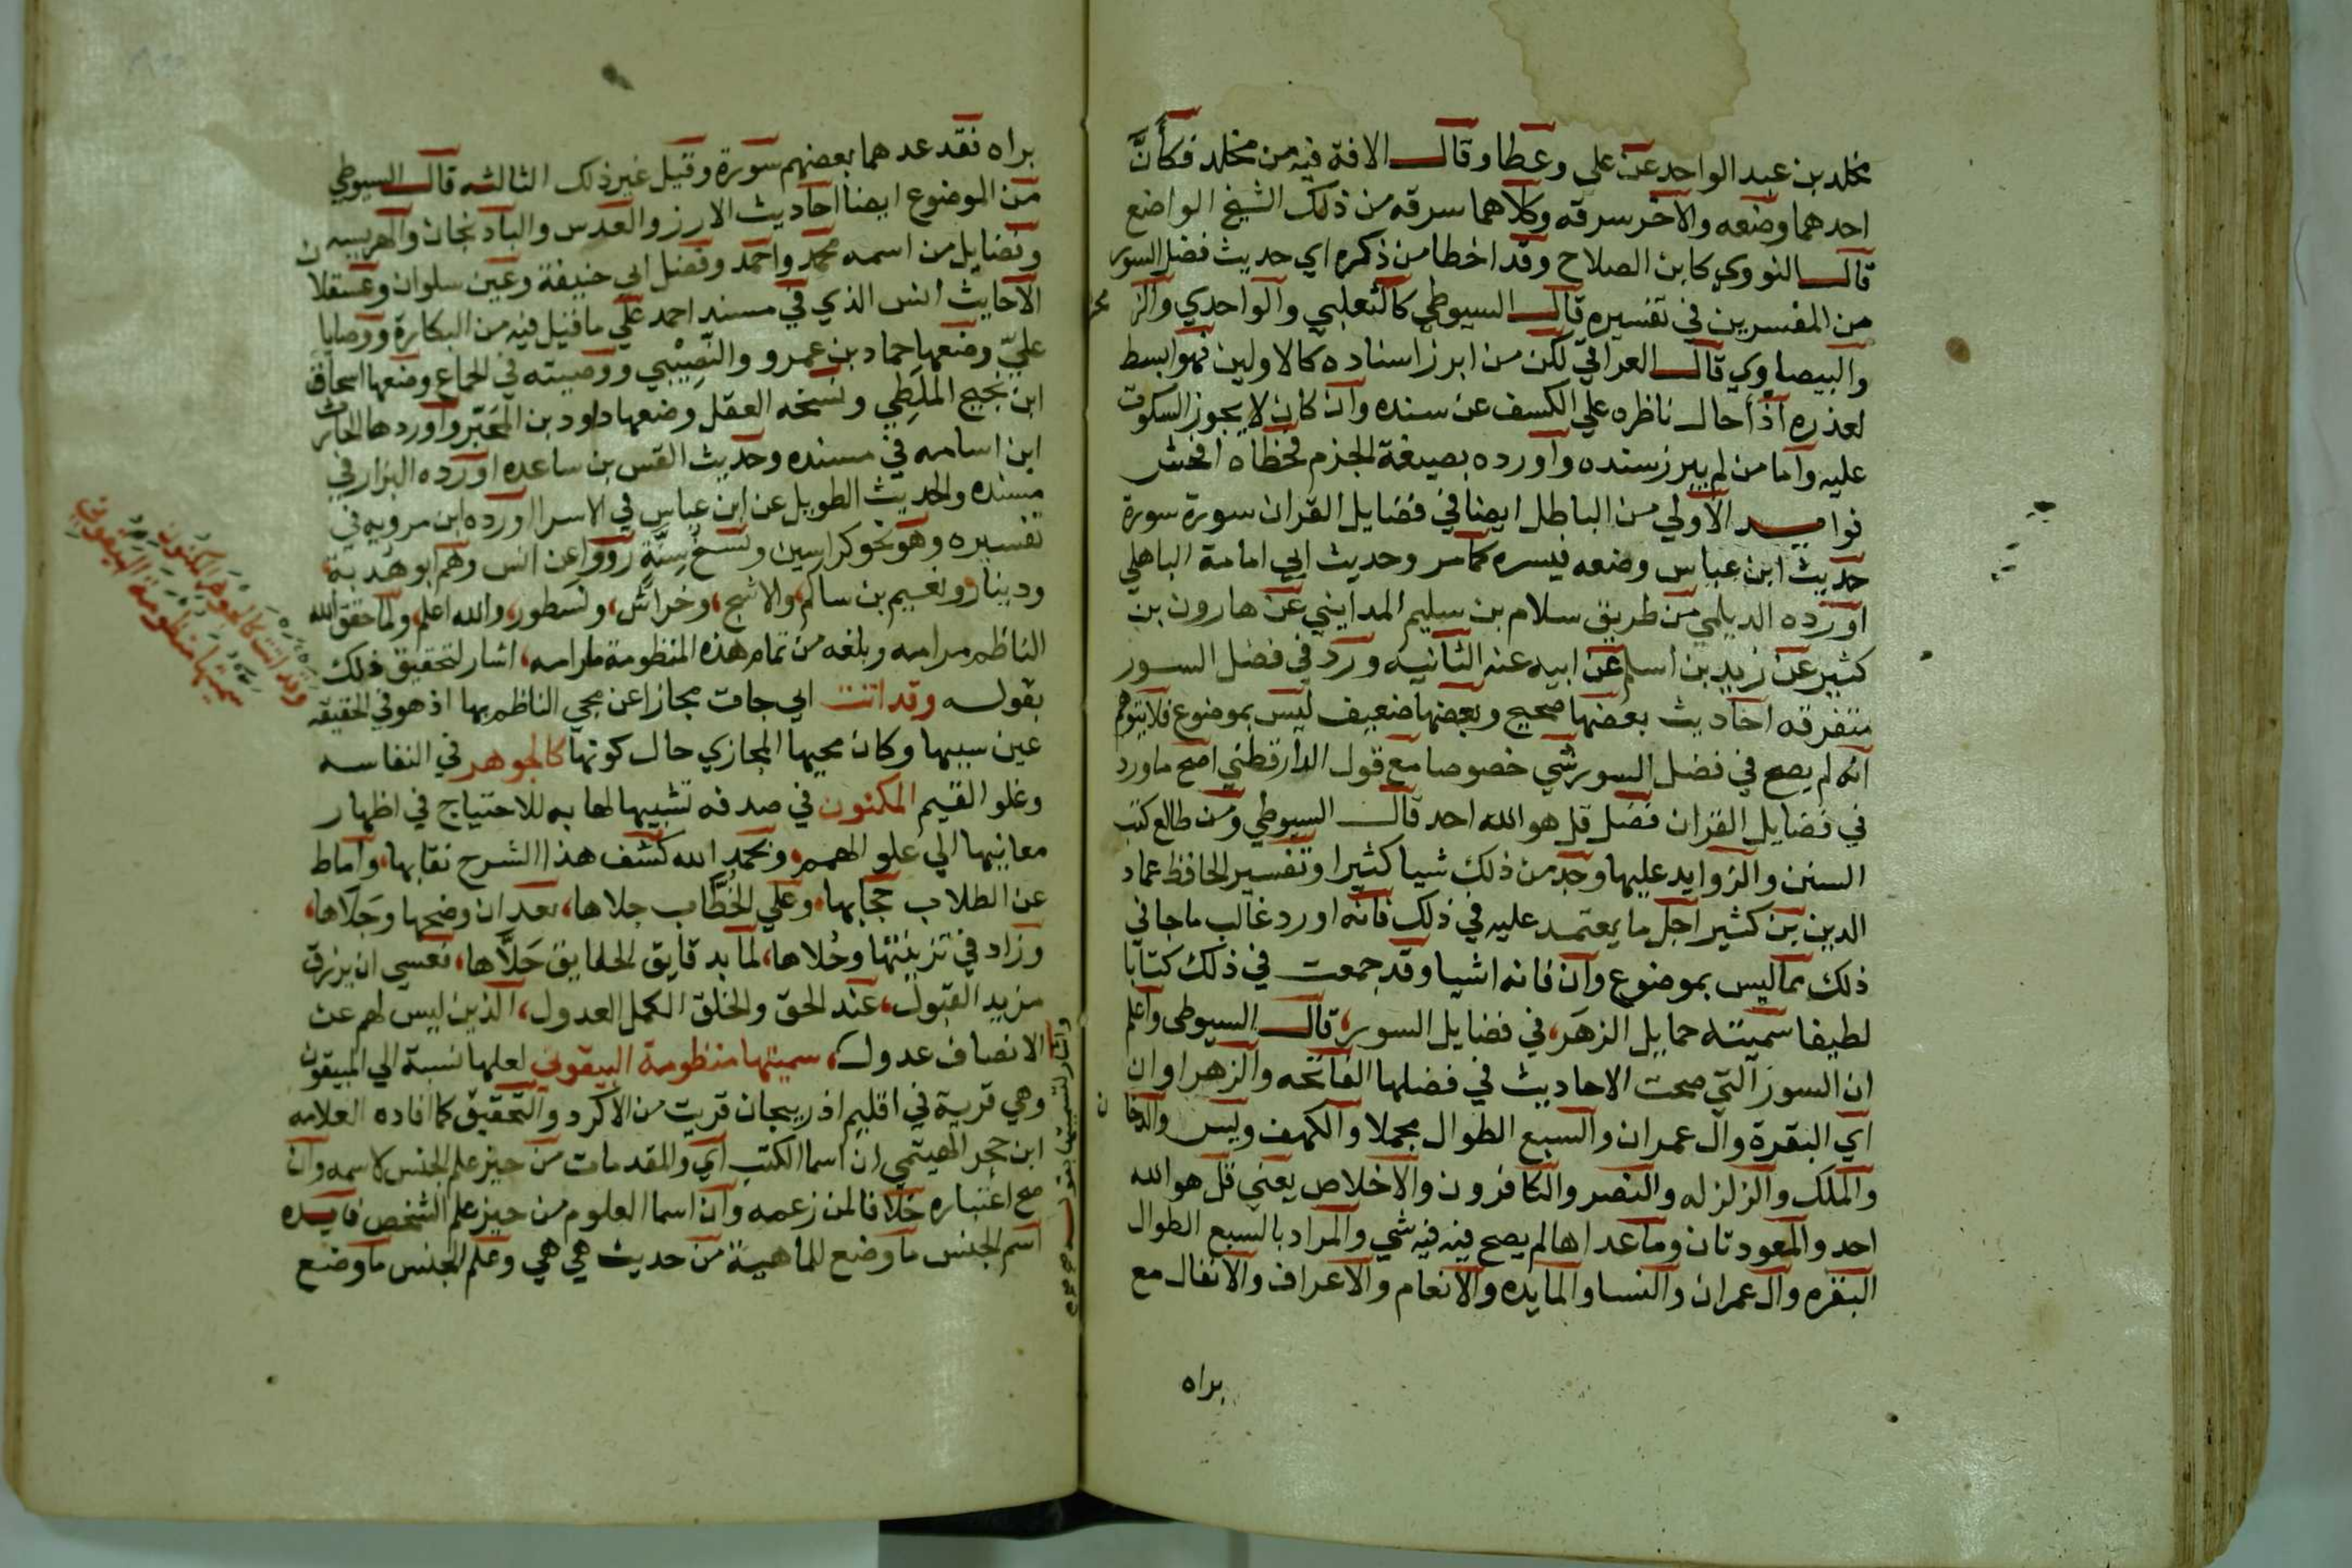 مخلد بن عبد الواحد عن علي وعطا وقال الافة فيه من مخلد فكأنَّ
احدهما وضعه والاخر سرقه وكلاهما سرقه من ذلك الشيخ الواضع
قال النووي كابن الصلاح وقد اخطا من ذكره اي حديث فضل السور
من المفسرين في تفسيره قال السيوطي كالثعلبي والواحدي والز مخ
والبيضاوي قال العراقي لكن من ابرز اسناده كالاولين فهو ابسط
لعذره اذ احال ناظره علي الكسف عن سنده وان كان لا يجوز السكوت
عليه واما من لم يبرز سنده واورده بصيغة الجزم فخطاه افحش
فوايد الاولي من الباطل ايضا في فضايل القران سورة سورة
حديث ابن عباس وضعه ميسره كمامر وحديث ابي امامة الباهلي
اورده الديلمي من طريق سلام بن سليم المدايني عن هارون بن
كثير عن زيد بن اسلم عن ابيه عنه الثانيه ورد في فضل السور
متفرقه احاديث بعضها صحيح وبعضها ضعيف ليس بموضوع فلا يتوهم
انه لم يصح في فضل السور شي خصوصا مع قول الدارقطني اصح ما ورد
في فضايل القران فضل قل هو الله احد قال السيوطي ومن طالع كتب
السنن والزوايد عليها وجد من ذلك شيا كثيرا وتفسير الحافظ عماد
الدين بن كثير اجل ما يعتمد عليه في ذلك فانه اورد غالب ما جا في
ذلك مما ليس بموضوع وان فاته اشيا وقد جمعت في ذلك كتابا
لطيفا سميته حمايل الزهر، في فضايل السور، قال السيوطي واعلم
ان السور التي صحت الاحاديث في فضلها الفاتحه والزهراوان
اي البقرة وال عمران والسبع الطوال مجملا والكهف ويس والدخان
والملك والزلزله والنصر والكافرون والاخلاص يعني قل هو الله
احد والمعوذتان وما عداها لم يصح فيه فيه شي والمراد بالسبع الطوال
البقره وال عمران والنسا والمايده والانعام والاعراف والانفال مع
براه
براه فقد عدهما بعضهم سورة وقيل غير ذلك الثالثه قال السيوطي
من الموضوع ايضا احاديث الارز والعدس والباذنجان والهريسه
وفضايل من اسمه محمد واحمد وفضل ابي حنيفة وعين سلوان وعسقلان
الاحايث انس الذي في مسند احمد علي ما قيل فيه من البكارة ووصايا
عليّ وضعها حماد بن عمرو والنَّصِيْبي ووصيته في الجماع وضعها اسحاق
ابن نجيح الملَطِي ونسخه العقل وضعها داود بن المُحَبَّر واوردها الحارث
ابن اسامه في مسنده وحديث القس بن ساعده اورده البزار في
مسنده والحديث الطويل عن ابن عباس في الاسرا اورده ابن مردويه في
تفسيره وهو نحو كراسين ونسخ ستَّةٍ رووا عن انس وهم ابو هدبة،
ودينار ونعيم بن سالم، والاشج، وخراش، ونسطور، والله اعلم، ولما حقق الله
الناظم مرامه وبلغه من تمام هذه المنظومة مارامه، اشار لتحقيق ذلك
بقوله وقد اتت اي جات مجازا عن مجي الناظم بها اذ هو في الحقيقه
عين سببها وكان مجيها المجازي حال كونها كالجوهر في النفاسه
وغلو القيم المكنون في صدفه تشبيها لها به للاحتياج في اظهار
معانيها الي علو الهمم، وبحمد الله كشف هذا الشرح نقابها، واماط
عن الطلاب حجابها، وعلي الخطَّاب جلاها، بعد ان وضحها وجَلَاها،
وزاد في تزيينها وحُلاها، لما بدقايق الحقايق حَلَّاها، فعسي ان يرزق
مزيد القبول، عند الحق والخلق الكمل العدول، الذين ليس لهم عن
الانصاف عدول، سميتها منظومة البيقوني لعلها نسبة الي البيقون
وهي قرية في اقليم اذربيجان قريب من الاكرد والتحقيق كما افاده العلامه
ابن حجر الهيتمي ان اسما الكتب اي والمقدمات من حيز علم الجنس لا اسمه وان
صح اعتباره خلافا لمن زعمه وان اسما العلوم من حيز علم الشخص فايده
اسم الجنس ما وضع للماهية من حديث هي هي وعلم الجنس ما وضع
وقد اتت كالجوهر المكنون
سميتها منظومة البيقوني
واشار لتسميتها بقوله